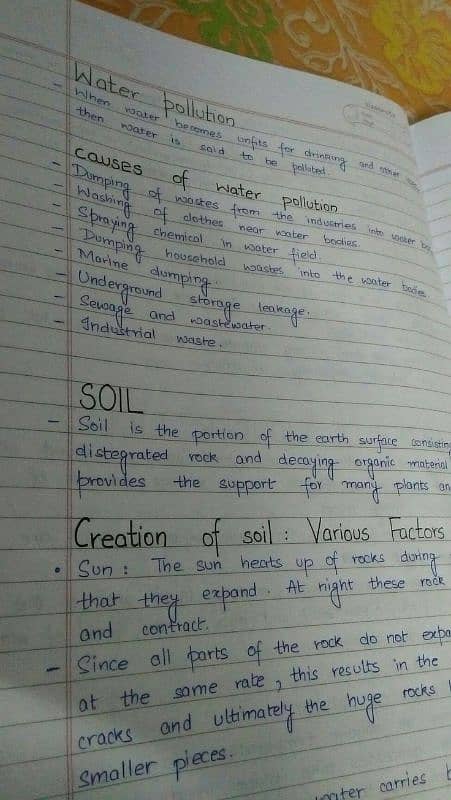 Water pollution
- When water becomes unfits for drinking and other
then water is said to be polluted.
causes of water pollution
- Dumping of wastes from the industries into water
- Washing of clothes near water bodies.
- Spraying chemical in water field.
- Dumping household wastes into the water bodies
Marine dumping.
- Underground storage leakage.
- Sewage and wastewater.
- Industrial waste.
SOIL
- Soil is the portion of the earth surface consisting
distegrated rock and decaying organic material
provides the support for many plants
Creation of soil : Various Factors
• Sun : The sun heats up of rocks during
that they expand. At night these rock
and contract.
- Since all parts of the rock do not
at the same rate, this results in the
cracks and ultimately the huge rocks
smaller pieces.
water carries